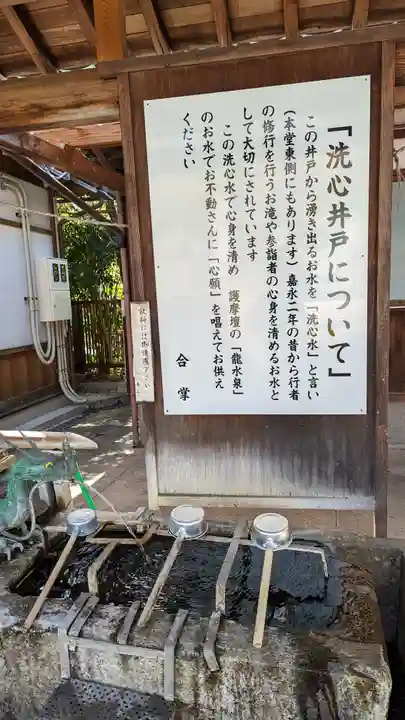 「洗心井戸について」
この井戸から湧き出るお水を「洗心水」と言い
（本堂東側にもあります）嘉永二年の昔から行者
の修行を行うお滝や参詣者の心身を清めるお水と
して大切にされています
この洗心水で心身を清め　護摩壇の「龍水泉」
のお水でお不動さんに「心願」を唱えてお供え
ください
合掌
飲料には御遠慮下さい